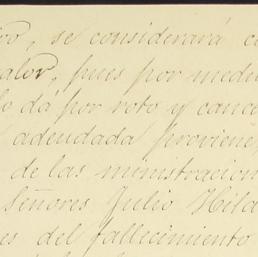 se considerará
valor, pues por medi
lo dá por roto y canc
adeudada provien
de las ministracion
Señores Julio Hild
es del fallecimiento